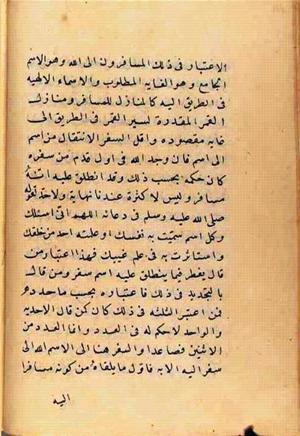 الاعتبار في ذلك المسافرون الى الله وهو الاسم
الجامع وهو الغاية المطلوب والاسماء الالهيه
في الطريق اليه كالمنازل للمسافر ومنازل
القمر المقدرة لسير القمر في الطريق الى
غاية مقصوده واقل السفر الانتقال من اسم
الى اسم فان وجد الله في اول قدم من سفره
كان حكمه بحسب ذلك وقد انطلق عليه انه
مسافر وليس لاكثره عندنا نهاية ولا حد لقوله
صلى الله عليه وسلم في دعائه اللهم اني اسئلك
وكل اسم سميت به نفسك او علمته احد من خلقك
واستاثرت به في علم غيبك فهذا اعتبار من
قال يفطر فيما ينطلق عليه اسم سفر ومن قال
بالتحديد في ذلك فاعتباره بحسب ما حدده
فمن اعتبر الثلثه في ذلك كان كمن قال الاحديه
والواحد لا حكم له في العدد وانما العدد من
الاثنين فصاعدا والسفر هنا الى الاسم الله الى
سفر اليه الا به فاول ما يلقاه من كونه مسافرا
اليه